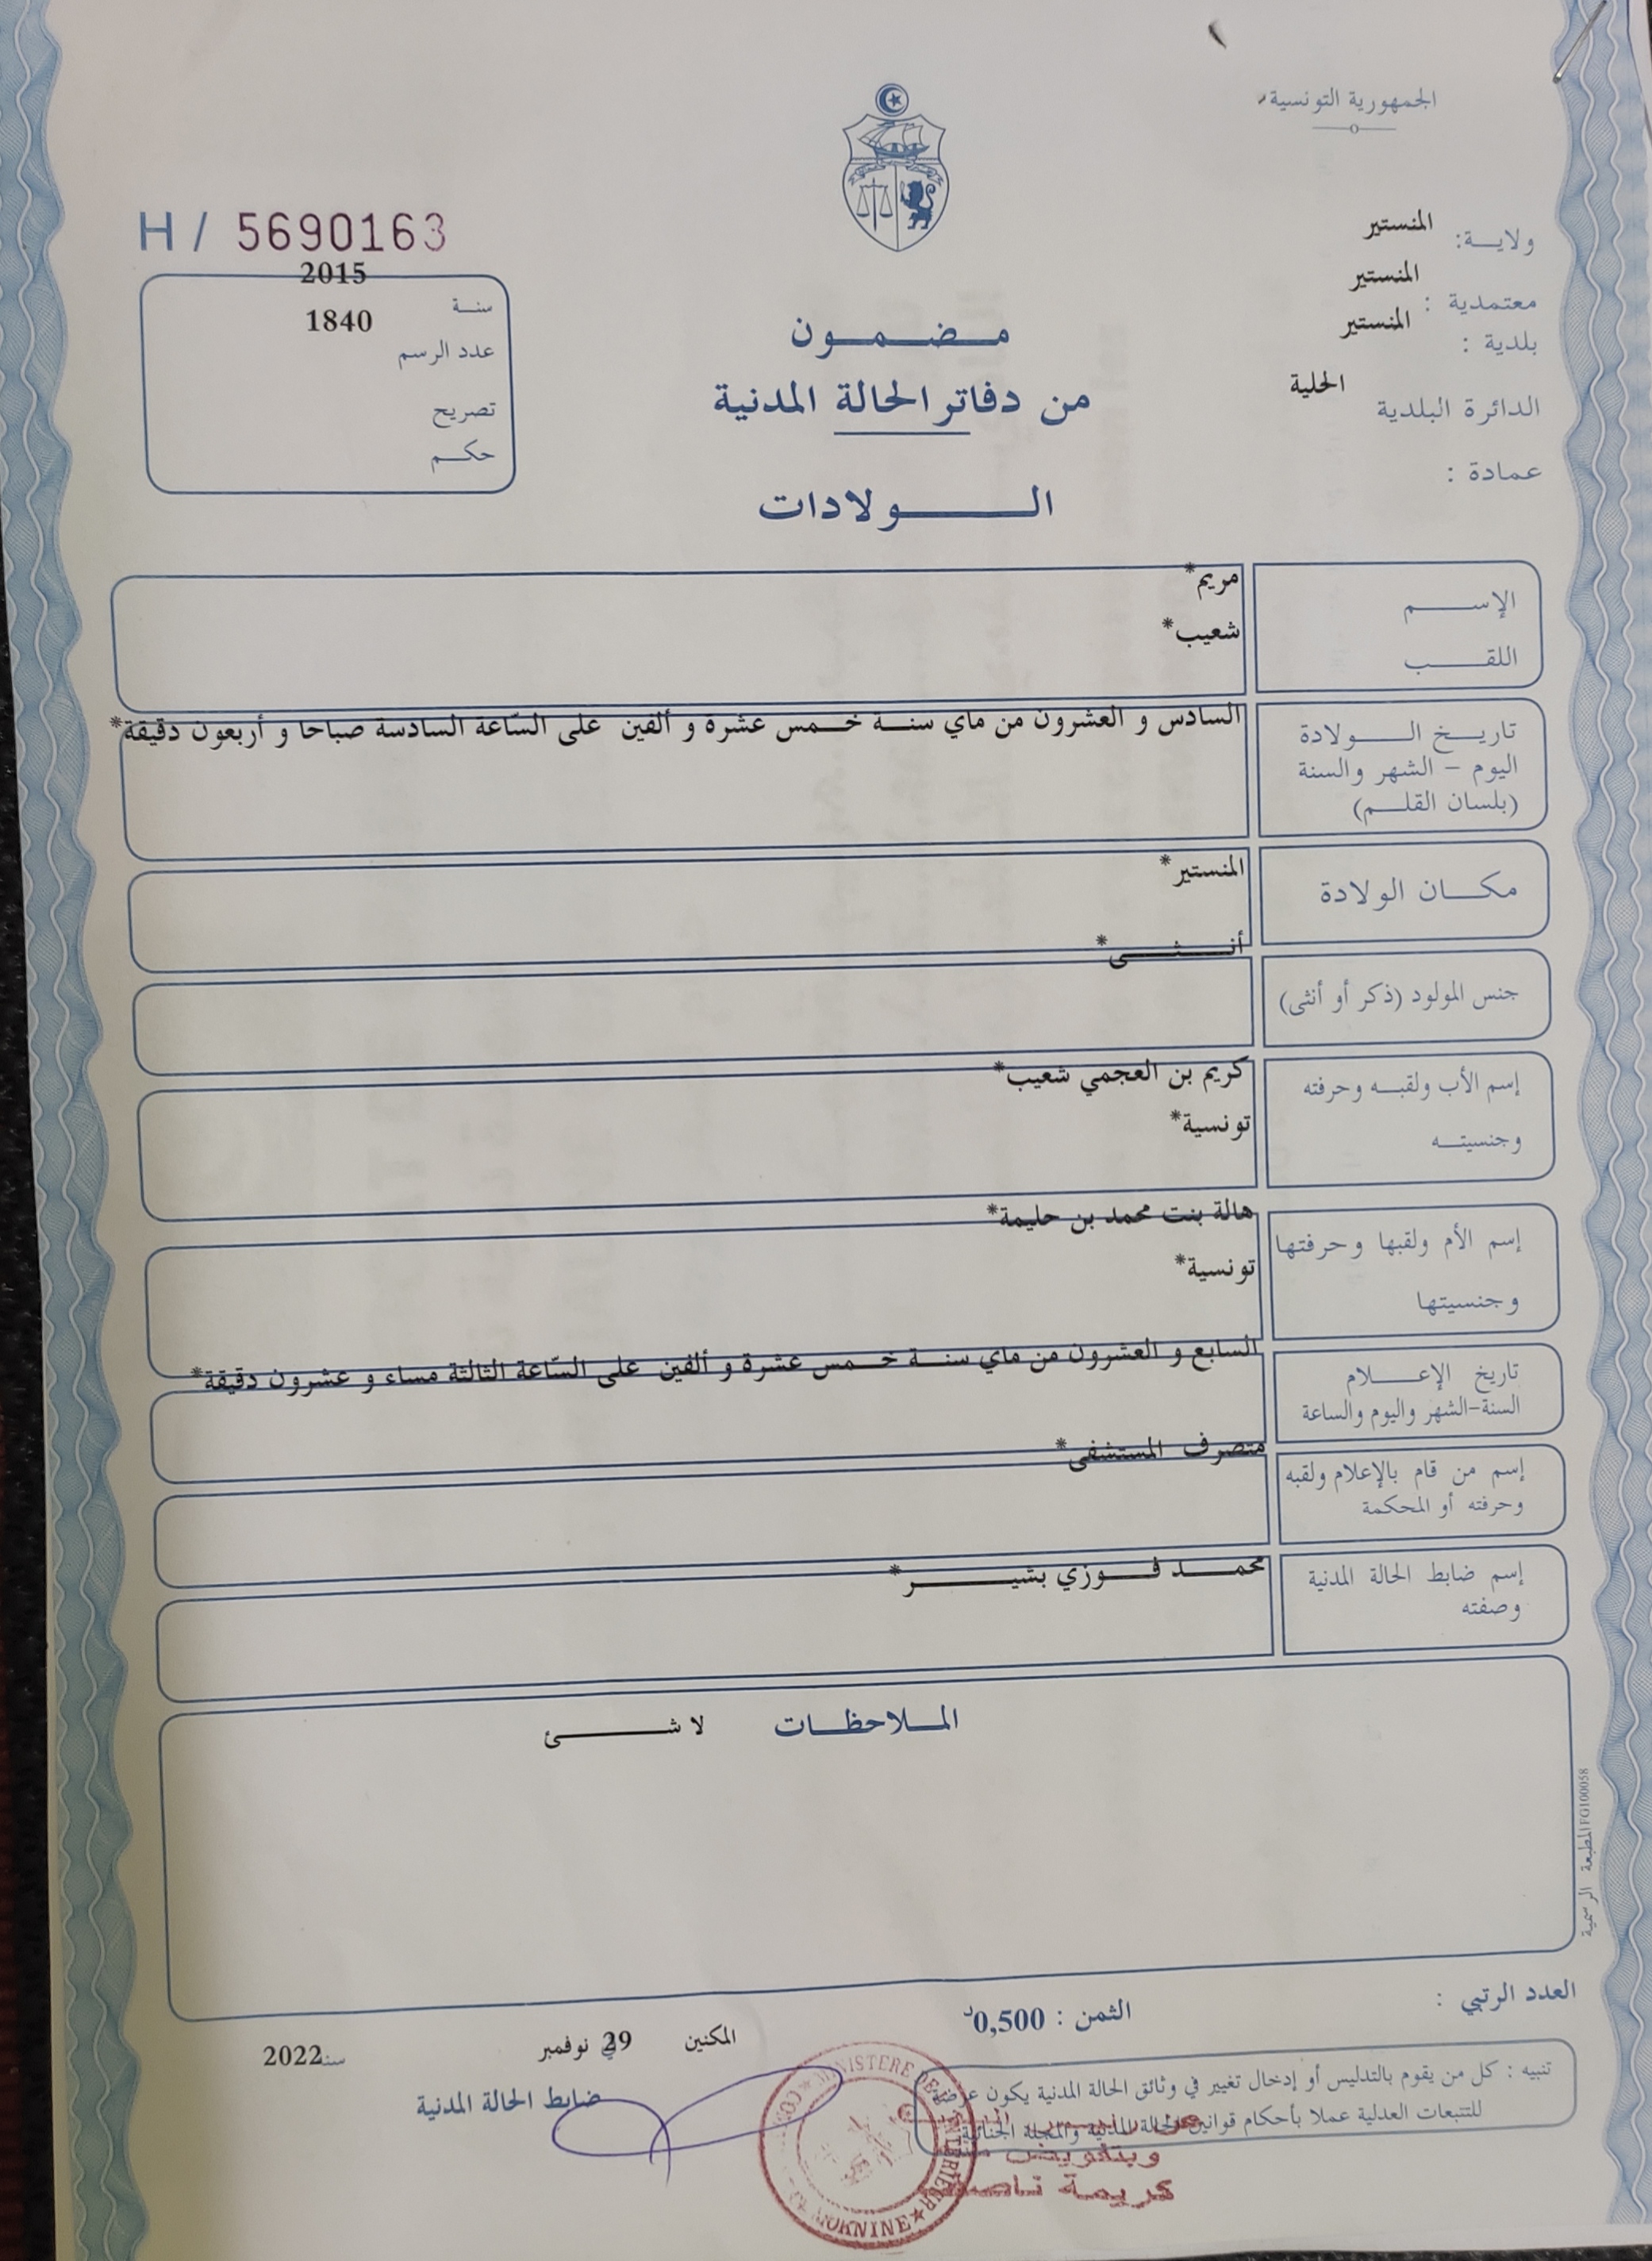 الجمهورية التونسية
H / 5690163
ولايـــة: المنستير
معتمدية : المنستير
بلدية : المنستير
الدائرة البلدية الحلية
عمادة :
سنـة 2015
عدد الرسم 1840
تصريح
حكـم
مـضـمـون
من دفاتر الحالة المدنية
الـولادات
الإســـم مريم*
اللقـــب شعيب*
تاريـخ الـــولادة السادس و العشرون من ماي سنـة خـمس عشرة و ألفين على السّاعة السادسة صباحا و أربعون دقيقة*
اليوم - الشهر والسنة
(بلسان القلـم)
مكـــان الولادة المنستير*
جنس المولود (ذكر أو أنثى) أنـــثـــى*
إسم الأب ولقبـه وحرفته كريم بن العجمي شعيب*
وجنسيتـه تونسية*
إسم الأم ولقبها وحرفتها هالة بنت محمد بن حليمة*
وجنسيتها تونسية*
تاريخ الإعـــلام السابع و العشرون من ماي سنـة خـمس عشرة و ألفين على السّاعة الثالثة مساء و عشرون دقيقة*
السنة-الشهر واليوم والساعة
إسم من قام بالإعلام ولقبه متصرف المستشفى*
وحرفته أو المحكمة
إسم ضابط الحالة المدنية محمـد فـوزي بشيـــر*
وصفته
المـلاحظـات لا شـــئ
المطبعة الرسمية FG100058
العدد الرتبي :
الثمن : 0,500د
المكنين في 29 نوفمبر سنة 2022
ضابط الحالة المدنية
تنبيه : كل من يقوم بالتدليس أو إدخال تغيير في وثائق الحالة المدنية يكون عرضة
للتتبعات العدلية عملا بأحكام قوانين الحالة المدنية والمجلة الجنائية
MINISTERE DE L'INTERIEUR
MOKNINE
وبتفويض منه
كريمة